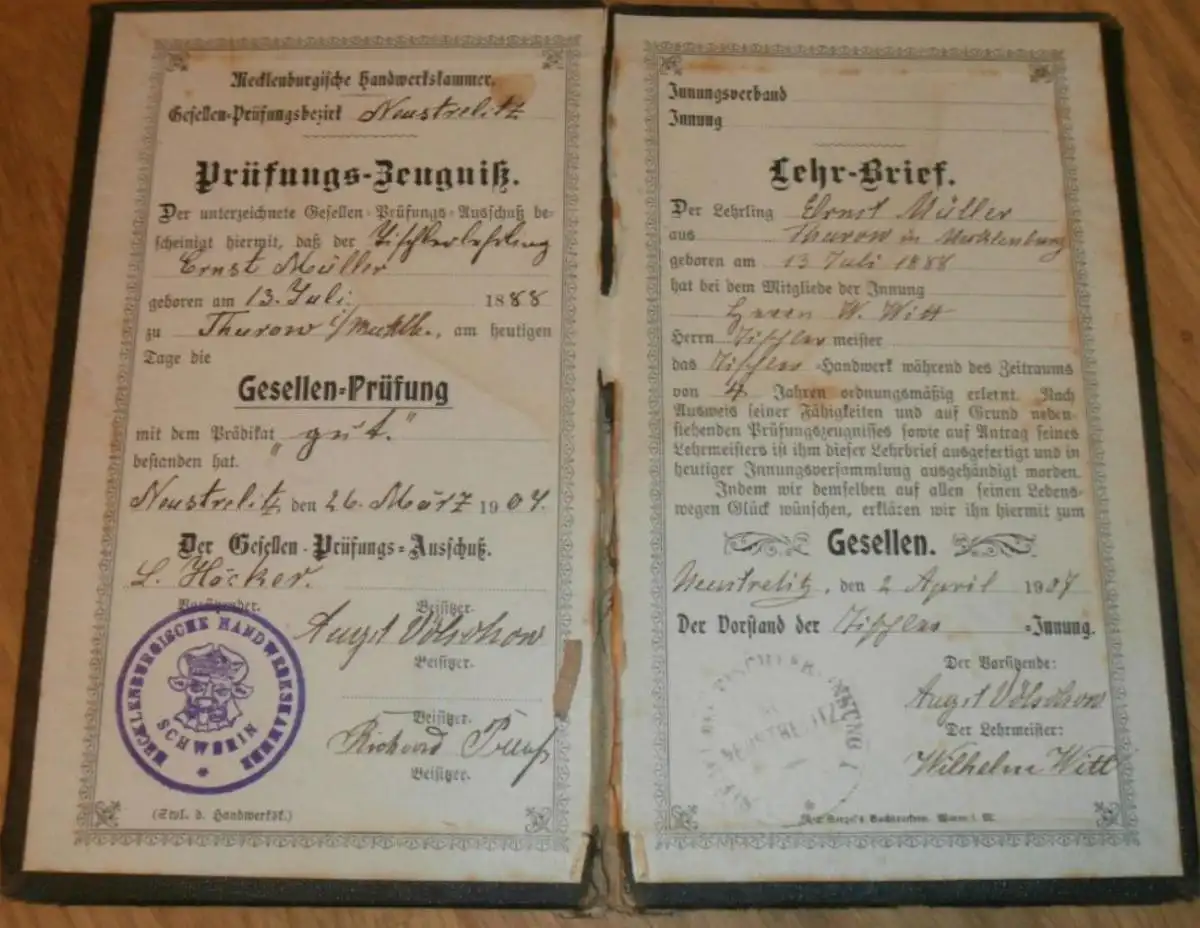 Mecklenburgische Handwerkskammer.
Gesellen-Prüfungsbezirk Neustrelitz
Prüfungs-Zeugniß.
Der unterzeichnete Gesellen-Prüfungs-Ausschuß be-
scheinigt hiermit, daß der Tischlerlehrling
Ernst Müller
geboren am 13. Juli 1888
zu Thurow i/Mecklb., am heutigen
Tage die
Gesellen-Prüfung
mit dem Prädikat „gut."
bestanden hat.
Neustrelitz den 26. März 1907.
Der Gesellen-Prüfungs-Ausschuß.
L. Höcker.
Vorsitzender. Beisitzer.
Augst Völschow
Beisitzer.
Beisitzer.
Richard
Beisitzer.
MECKLENBURGISCHE HANDWERKSKAMMER
SCHWERIN
(Stpl. d. Handwerksk.)
Innungsverband
Innung
Lehr-Brief.
Der Lehrling Ernst Müller
aus Thurow in Mecklenburg
geboren am 13 Juli 1888
hat bei dem Mitgliede der Innung
Herrn W. Witt
Herrn Tischler meister
das Tischler-Handwerk während des Zeitraums
von 4 Jahren ordnungsmäßig erlernt. Nach
Ausweis seiner Fähigkeiten und auf Grund neben-
stehenden Prüfungszeugnisses sowie auf Antrag seines
Lehrmeisters ist ihm dieser Lehrbrief ausgefertigt und in
heutiger Innungsversammlung ausgehändigt worden.
Indem wir demselben auf allen seinen Lebens-
wegen Glück wünschen, erklären wir ihn hiermit zum
Gesellen.
Neustrelitz, den 2 April 1907
Der Vorstand der Tischler-Innung.
Der Vorsitzende:
Augst Völschow
Der Lehrmeister:
Wilhelm Witt
TISCHLER-INNUNG
NEUSTRELITZ
Buchdruckerei, Waren i. M.